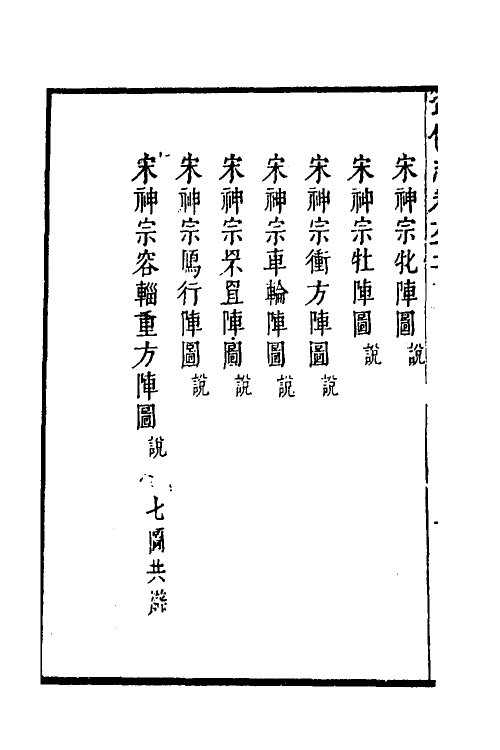 宋神宗牝陣圖 說
宋神宗牡陣圖 說
宋神宗衝方陣圖 說
宋神宗車輪陣圖 說
宋神宗罘罝陣圖 說
宋神宗鴈行陣圖 說
宋神宗容輜重方陣圖 說
七圖共